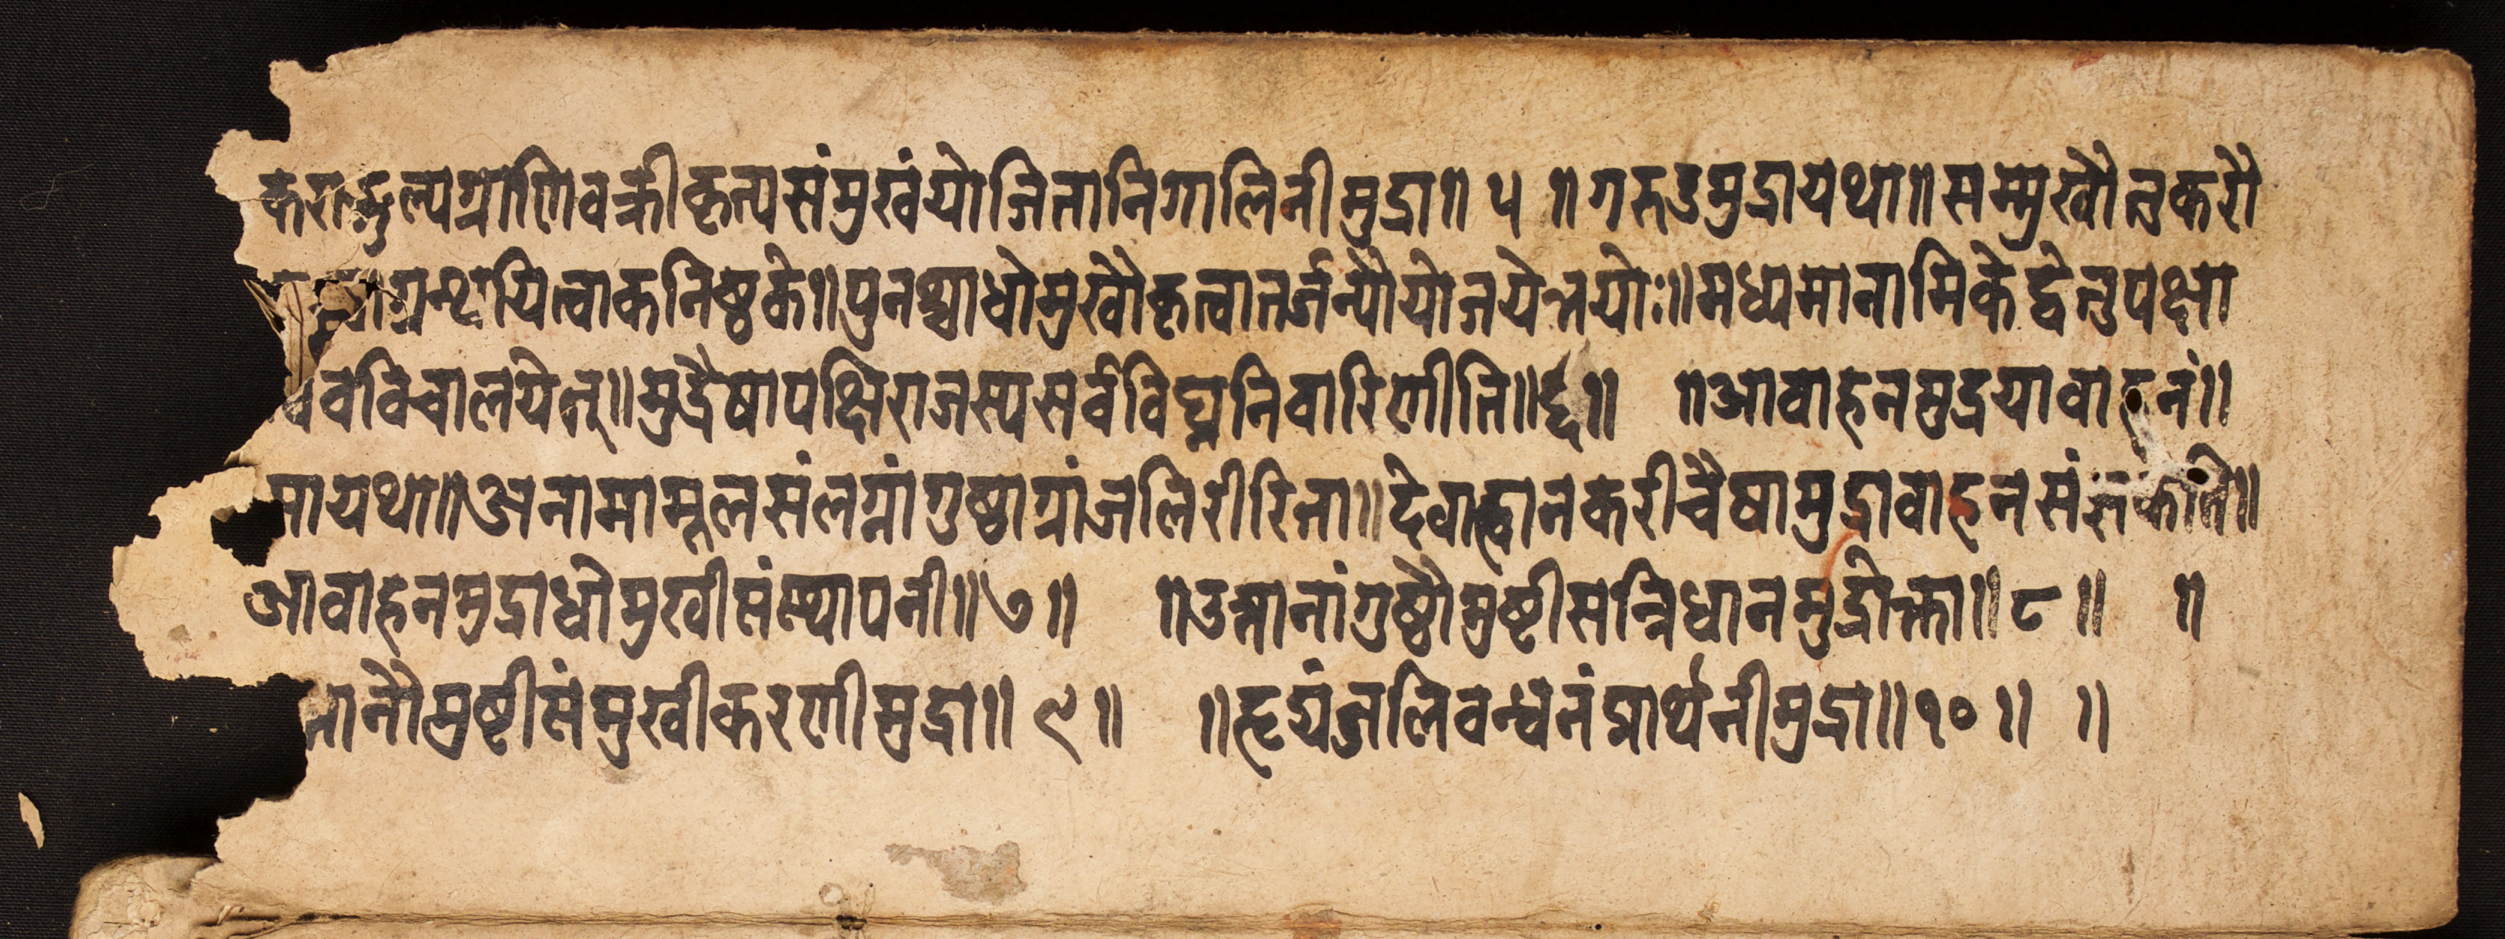 कराङ्गुल्यग्राणिवक्रीकृत्यसंमुखंयोजितानिगालिनीमुद्रा॥ ५ ॥ गरुडमुद्रायथा॥ सम्मुखौतुकरौ
ग्रन्थयित्वाकनिष्ठके॥ पुनश्चाधोमुखौकृत्वातर्जन्यौयोजयेत्तयोः॥ मध्यमानामिकेद्वेतुपक्षा
वविचालयेत्॥ मुद्रैषापक्षिराजस्यसर्वविघ्ननिवारिणीति॥ ६॥ ॥ आवाहनमुद्रयावाहनं॥
यथा॥ अनामामूलसंलग्नांगुष्ठाग्रांजलिरीरिता॥ देवाह्वानकरीचैषामुद्रावाहनसंज्ञकेति॥
आवाहनमुद्राधोमुखीसंस्थापनी॥ ७ ॥ ॥ उत्तानांगुष्ठौमुष्टीसन्निधानमुद्रोक्ता॥ ८ ॥ ॥
तानौमुष्टीसंमुखीकरणीमुद्रा॥ ९ ॥ ॥ हृद्यंजलिवन्धनंप्रार्थनीमुद्रा॥ १० ॥ ॥